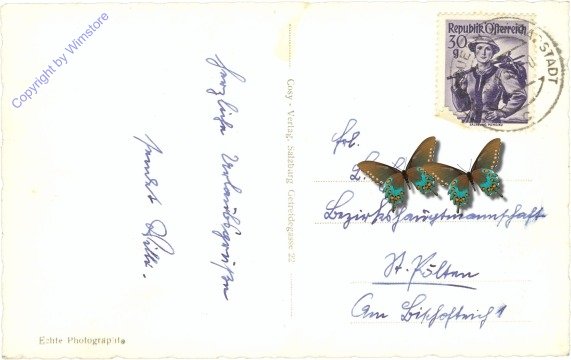 Copyright by Wimstore
Herzliche Urlaubsgrüße
sendet Willi.
Echte Photographie
Cosy - Verlag, Salzburg Getreidegasse 22
Republik Österreich
30
g
STADT
Frl.
Bezirkshauptmannschaft
St. Pölten
Am Bischofteich 1